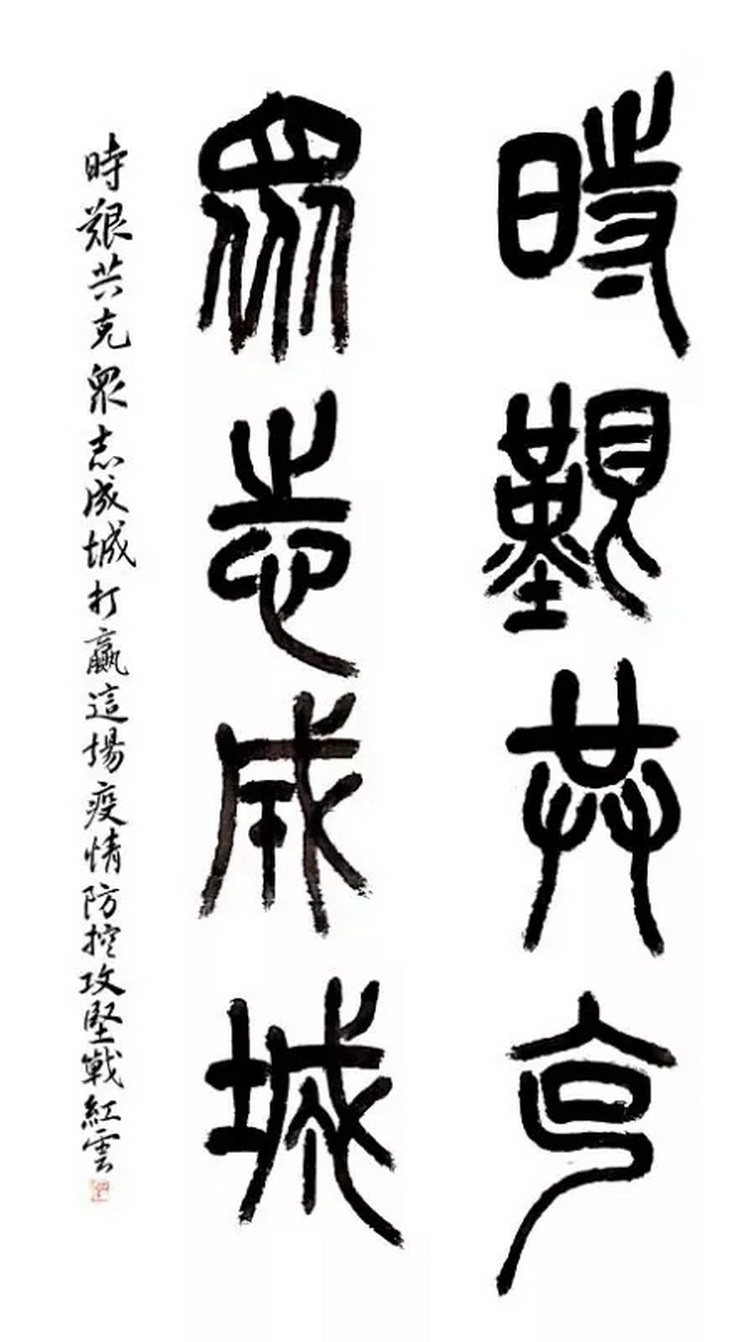 時艱共克
眾志成城
時艱共克眾志成城打贏這場疫情防控攻堅戰紅雲